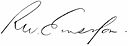 R. W. Emerson.